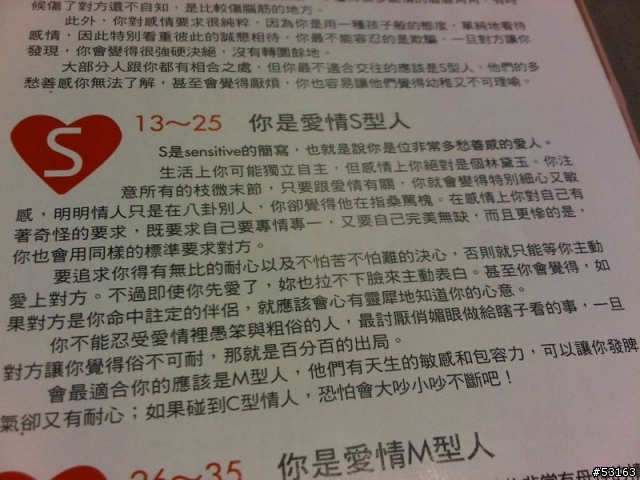 候傷了對方還不自知，是比較傷腦筋的地方。
此外，你對感情要求很純粹，因為你是用一種孩子般的態度，單純地看待
感情，因此特別看重彼此的誠懇相待，你最不能容忍的是欺騙，一旦對方讓你
發現，你會變得很強硬決絕，沒有轉圜餘地。
大部分人跟你都有相合之處，但你最不適合交往的應該是S型人，他們的多
愁善感你無法了解，甚至會覺得厭煩，你也容易讓他們覺得幼稚又不可理喻。
S
13～25 你是愛情S型人
S是sensitive的簡寫，也就是說你是位非常多愁善感的愛人。
生活上你可能獨立自主，但感情上你絕對是個林黛玉。你注
意所有的枝微末節，只要跟愛情有關，你就會變得特別細心又敏
感，明明情人只是在八卦別人，你卻覺得他在指桑罵槐。在感情上你對自己有
著奇怪的要求，既要求自己要專情專一，又要自己完美無缺，而且更慘的是，
你也會用同樣的標準要求對方。
要追求你得有無比的耐心以及不怕苦不怕難的決心，否則就只能等你主動
愛上對方。不過即使你先愛了，妳也拉不下臉來主動表白。甚至你會覺得，如
果對方是你命中註定的伴侶，就應該會心有靈犀地知道你的心意。
你不能忍受愛情裡愚笨與粗俗的人，最討厭俏媚眼做給瞎子看的事，一旦
對方讓你覺得俗不可耐，那就是百分百的出局。
會最適合你的應該是M型人，他們有天生的敏感和包容力，可以讓你發脾
氣卻又有耐心；如果碰到C型情人，恐怕會大吵小吵不斷吧！
26～35 你是愛情M型人
#53163